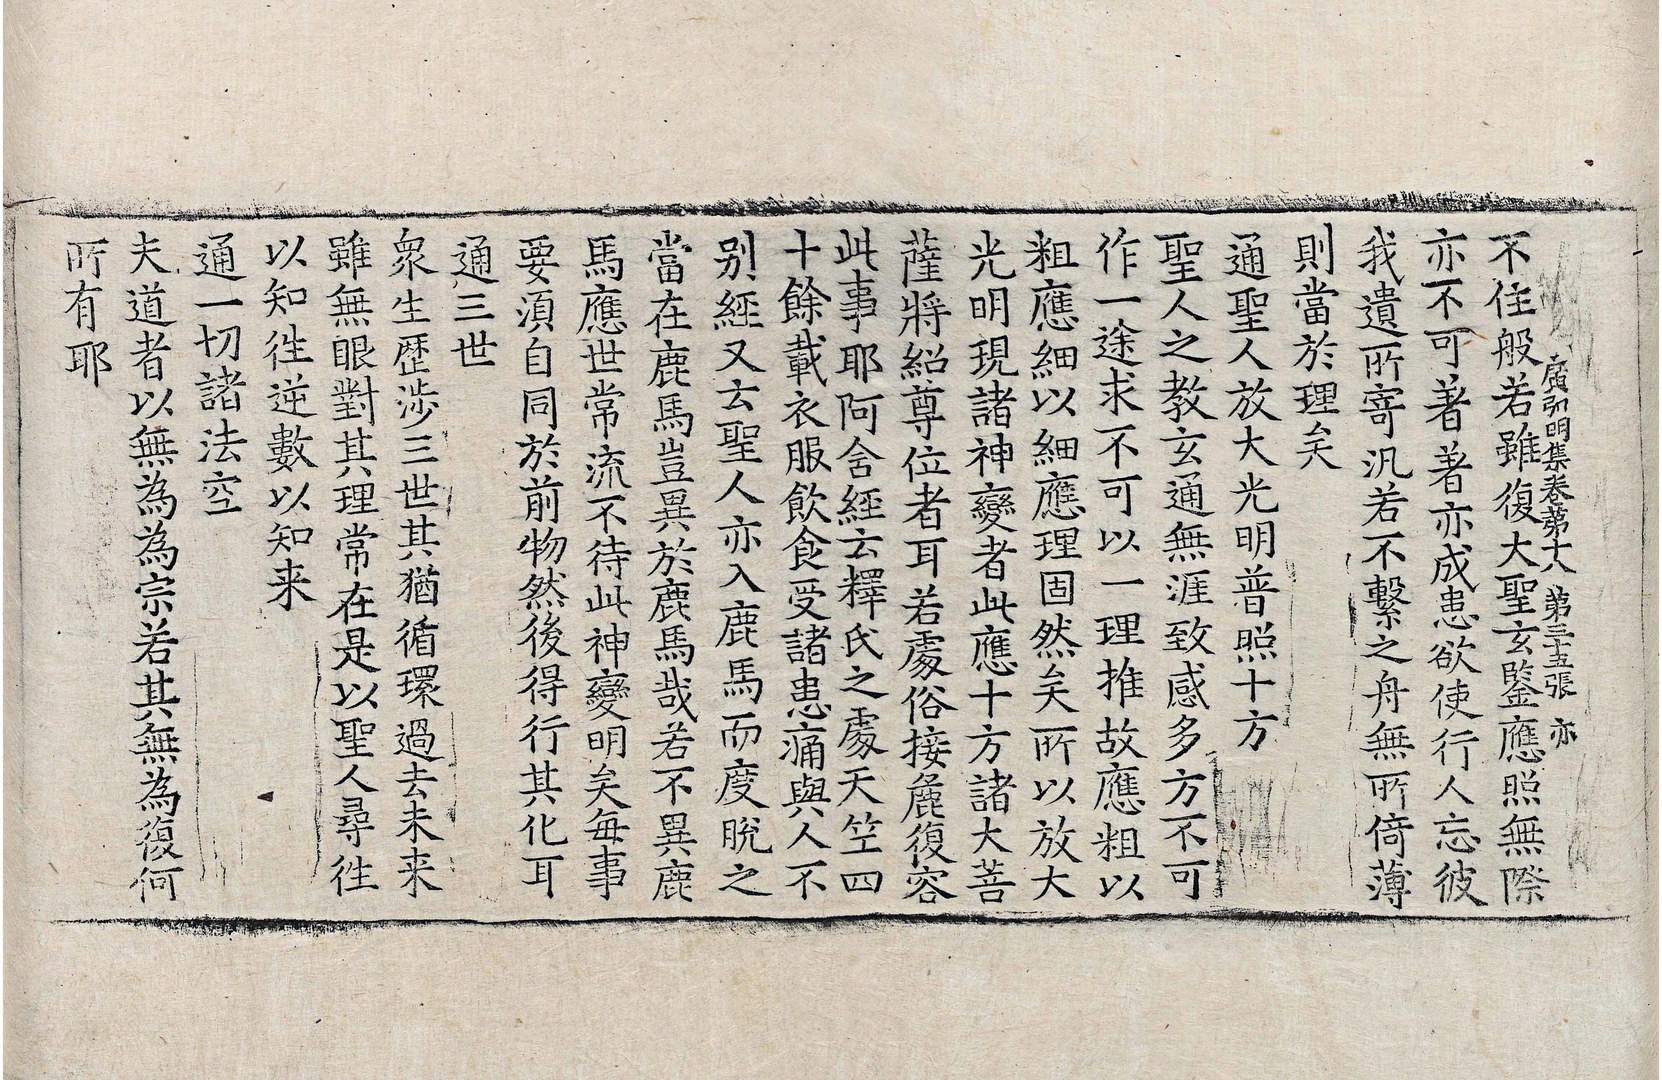 廣弘明集卷第十八　第三十五張　亦
不住般若雖復大聖玄鑒應照無際
亦不可著著亦成患欲使行人忘彼
我遺所寄汎若不繫之舟無所倚薄
則當於理矣
通聖人放大光明普照十方
聖人之教玄通無涯致感多方不可
作一途求不可以一理推故應粗以
粗應細以細應理固然矣所以放大
光明現諸神變者此應十方諸大菩
薩將紹尊位者耳若處俗接麁復容
此事耶阿含經云釋氏之處天竺四
十餘載衣服飲食受諸患痛與人不
别經又云聖人亦入鹿馬而度脫之
當在鹿馬豈異於鹿馬哉若不異鹿
馬應世常流不待此神變明矣每事
要須自同於前物然後得行其化耳
通三世
衆生歷涉三世其猶循環過去未来
雖無眼對其理常在是以聖人尋往
以知往逆數以知来
通一切諸法空
夫道者以無為為宗若其無為復何
所有耶